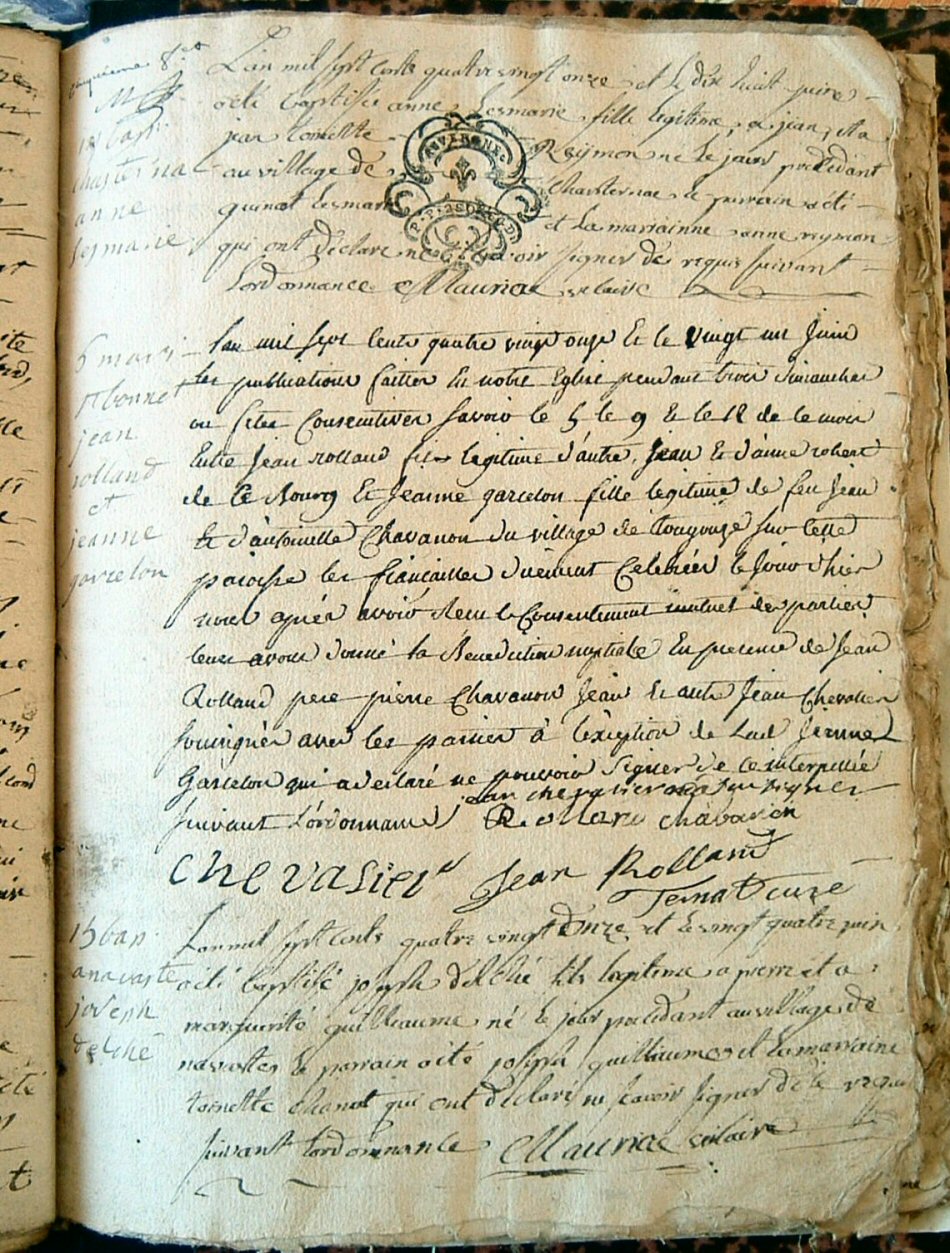 L'an mil sept cents quatre vingt onze et le dix huit juin
a été baptisée anne Lesmarie fille legitime a jean, et a
par tonette Reymon né le jour précédant
au village de Chasternac le parrain a eté
AUVERGNE
quinot Lesmar et la marrainne anne reymon
qui ont déclaré ne savoir signer de requis suivant
l'ordonnance Mauriac vicaire
chasternac
anne
lesmarie
5 mari
st bonnet
jean
rolland
et
jeanne
garcelon
Lan mil sept cents quatre vingt onze Et le vingt un Juin
les publications faittes En notre Eglise pendant trois dimanches
ou fetes Consecutives Savoir le 5 le 9 Et le 12 de ce mois
Entre Jean rolland fils legitime d'autre Jean Et d'anne robert
de ce Bourg Et Jeanne garcelon fille legitime de feu Jean
Et d'antoinette Chavanon du village de sur cette
paroisse les fiançailles duement Celebrées le Jour d'hier
nous aprés avoir Recu le Consentement mutuel des parties
leur avons donné la Benediction nuptiale En presence de Jean
Rolland pere pierre Chavanon Jean Et autre Jean Chevalier
soussignés avec les parties à l'exeption de Lad. Jeanne
Garcelon qui a declaré ne pouvoir Signer de ce interpellée
suivant L'ordonnance jean chevalier signer
Rolland chavanon
chevalier Jean Rolland
curé
15 bap.
navaste
joseph
delché
L'an mil sept cents quatre vingt onze et le vingt quatre juin
a été baptisé joseph delché fils legitime a pierre et a
marguerite guilleaume né le jour précédant au village de
navastes le parrain a été joseph guilliaume et la marraine
toinette chanot qui ont déclaré ne scavoir signer de ce requis
suivant l'ordonnance Mauriac vicaire